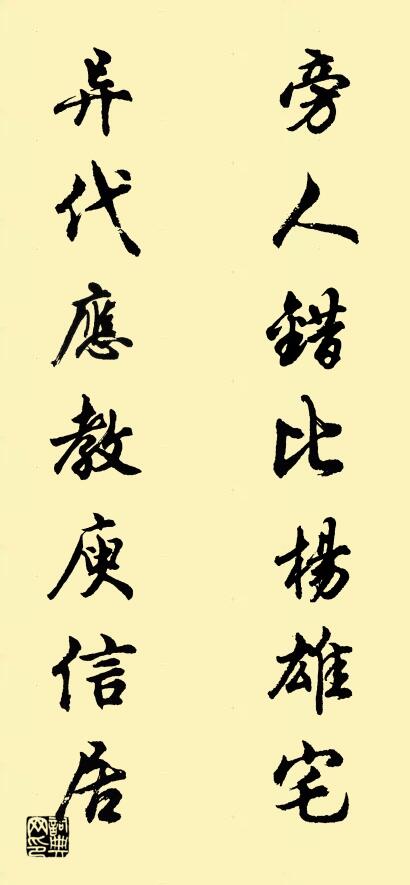 旁人錯比楊雄宅
异代應教庾信居
詞典网印